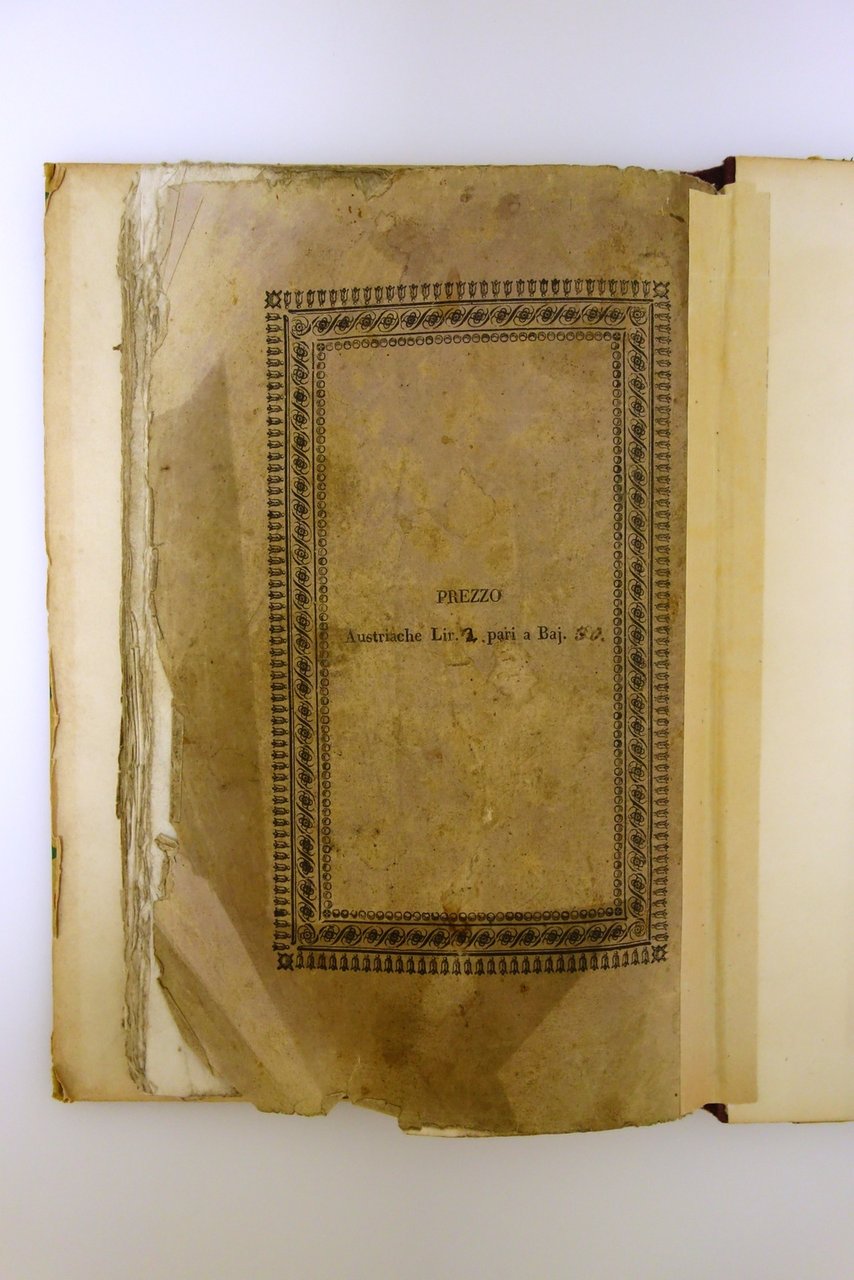 PREZZO
Austriache Lir. 2. pari a Baj. 30.